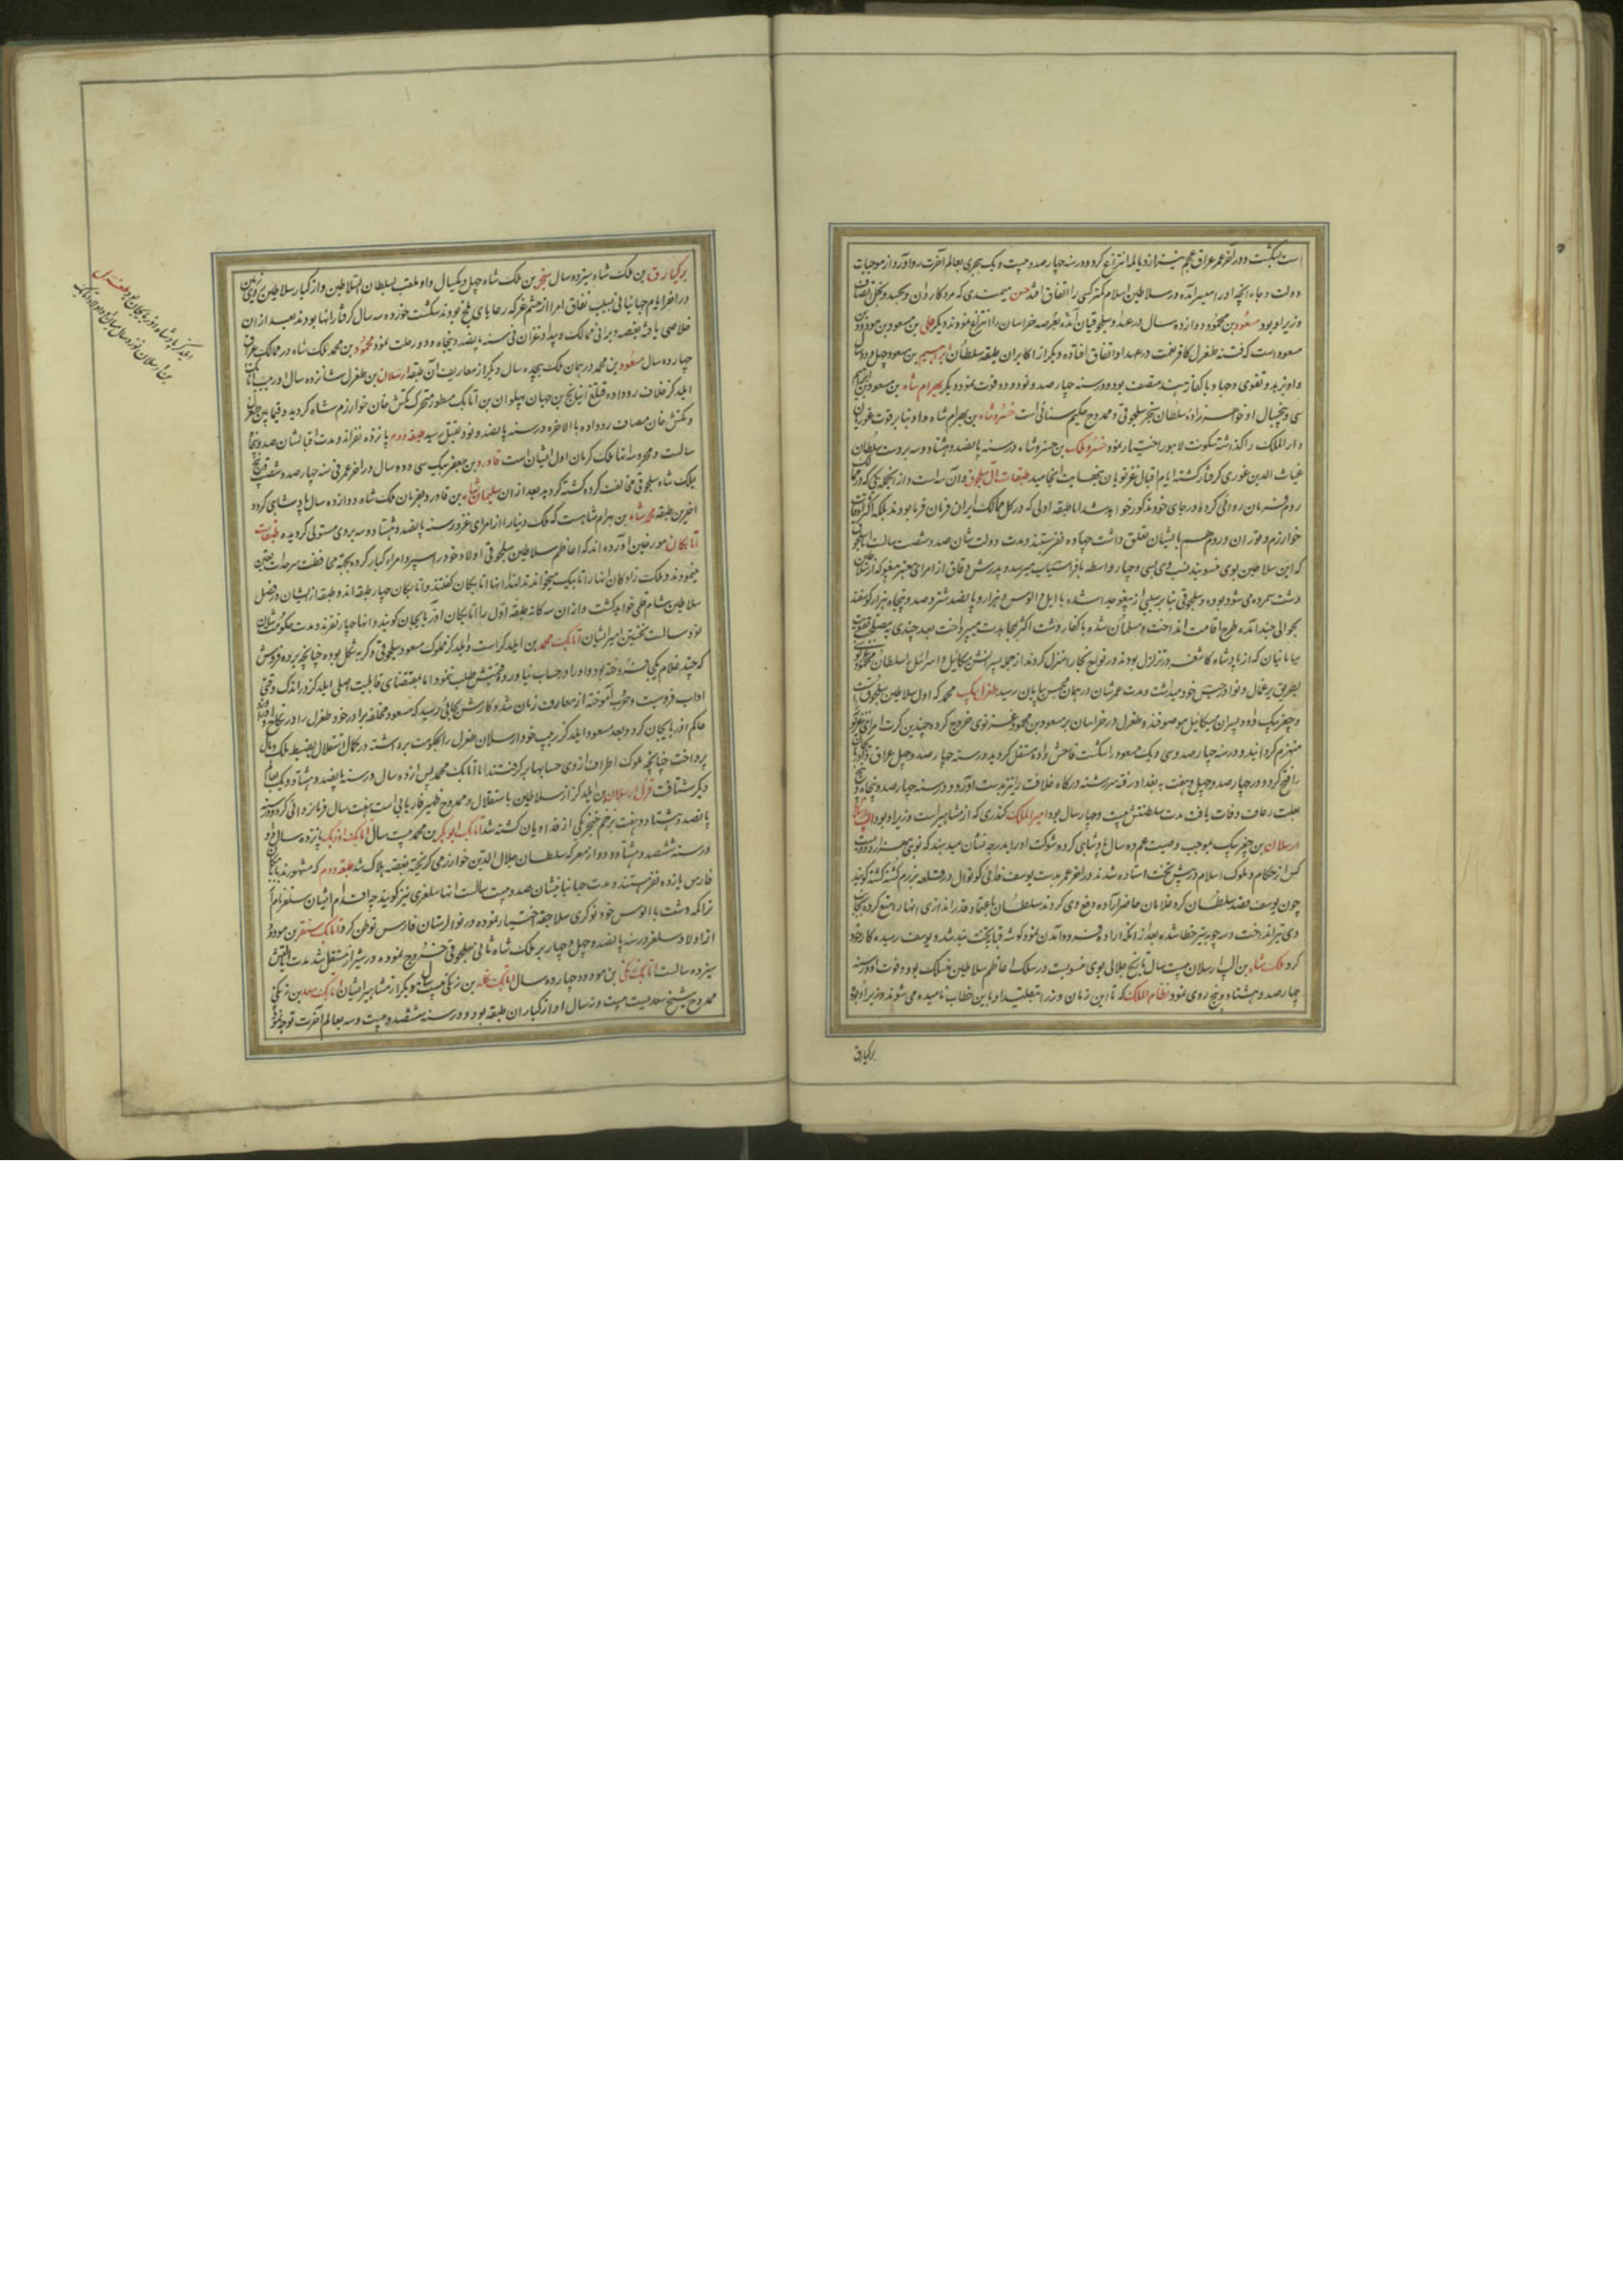 است بگشت و در آخر عمر عراق عجم نیز از دیالمه انتزاع کرد و در سنه چهار صد و بیست و یک هجری بعالم آخرت رو آورد از موجبات
دولت و جاه آنچه او را میسر آمده در سلاطین اسلام کمتر کسی را اتفاق افتد حسن میمندی که مرد کاردان و
وزیر او بود مسعود بن محمود دوازده سال در عهد او سلجوقیان آمده بعرصه خراسان را انتزاع نمودند دیگر علی بن مسعود بن مودود بن
مسعود است که فتنه طغرل کافر نعمت در عهد او اتفاق افتاده دیگر از اکابر آن طبقه سلطان ابراهیم بن مسعود چهل و دو سال
و او بزهد و تقوی و جهاد با کفار هند متصف بود و در سنه چهار صد و نود و دو فوت نمود دیگر بهرام شاه بن مسعود بن ابراهیم
سی و پنجسال او خواهرزاده سلطان سنجر سلجوقی و ممدوح حکیم سنائی است خسرو شاه بن بهرام شاه و او بنا بر قوت غوریان
دار الملک را گذاشته سکونت لاهور اختیار نمود خسرو ملک بن خسرو شاه در سنه پانصد و هشتاد و سه بر دست سلطان
غیاث الدین غوری گرفتار گشته ایام اقبال غزنویان بنهایت انجامید طبقات آل سلجوق و آن سه است و از آنجمله یکی که در ممالک
روم فرمان روائی کرده در جای خود مذکور خواهد شد اما طبقه اولی که در کل ممالک ایران فرمان فرما بودند بلکه اکثر اوقات
خوارزم و توران و روم هم بایشان تعلق داشت چهارده نفر هستند و مدت دولت شان صد و شصت سالست سلجوق
که این سلاطین بوی منسوبند نسب وی بسی و چهار واسطه بافراسیاب میرسد و پدرش دقاق از امرای معتبر
دشت شمرده می شود بوده و سلجوق بنا بر سببی از پیغو جدا شده با ایل و الوس و هزار و پانصد شتر و صد و پنجاه هزار گوسفند
بحوالی جند آمده طرح اقامت انداخت و مسلمان شده با کفار دشت اکثر بمحاربت میپرداخت بعد چندی
سامانیان که از پادشاه کاشغر در تزلزل بودند در نواحی بخارا منزل کردند از جمله پسرانش میکائیل و اسرائیل سلطان محمود
بطریق یرغمال و نوا در حبس خود میداشت و مدت عمرشان در همان محبس بپایان رسید طغرل بیک محمد که اول سلاطین سلجوق است
و چغر بیک داود پسران میکائیل موصوفند و طغرل در خراسان بر مسعود بن محمود غزنوی خروج کرده چندین کرت امرای غزنوی
منهزم گردانید و در سنه چهار صد و سی و یک مسعود را شکست فاحش داده مستقل گردید در سنه چهار صد و چهل عراق و
را فتح کرد و در چهار صد و چهل و هفت به بغداد رفته سررشته درگاه خلافت را نیز بدست آورد و در سنه چهار صد و پنجاه و پنج
بعلت رعاف وفات یافت مدت سلطنتش بیست و چهار سال بود امیر الملک کندری که از مشاهیر است وزیر او بود الپ
ارسلان بن چغر بیک بموجب وصیت عم ده سال پادشاهی کرده شوکت او را بدرجه نشان میدهند که نوبتی هزار و دویست
کس از حکام و ملوک اسلام در پیش تخت استاده شدند در آخر عمر بدست یوسف نامی کوتوال قلعه بزرم کشته گشته گویند
چون یوسف قصد سلطان کرد غلامان حاضر اراده دفع وی کردند سلطان باعتماد قدراندازی آنها را منع کرده بجانب
وی تیر انداخت و سه چوبه تیر خطا شده بعد از آنکه اراده فرود آمدن نمود گوشه قبا بتخت بند شد و یوسف رسیده کار خود
کرد ملک شاه بن الپ ارسلان بیست سال تاریخ جلالی بوی منسوبست در سلک اعاظم سلاطین منسلک بود و فوت او در سنه
چهار صد و هشتاد و پنج روی نمود نظام الملک که تا این زمان وزرا بتقلید او باین خطاب نامیده می شوند وزیر او بود
برکیارق
برکیارق بن ملک شاه سیزده سال سنجر بن ملک شاه چهل و یکسال و او ملقب بسلطان السلاطین و از کبار سلاطین
در آخر ایام جهانبانی بسبب نفاق امرا از حشم غز که رعایای بلخ بودند شکست خورده سه سال گرفتار آنها بود و بعد از آن
خلاصی یافته بغصه ویرانی ممالک و بیداد غزان فی سنه پانصد و پنجاه و دو رحلت نمود محمود بن محمد ملک شاه در ممالک عراق
چهارده سال مسعود بن محمد در همان ملک هجده سال دیگر از معاریف آن طبقه ارسلان بن طغرل شانزده سال او ربیب اتابک
ایلدگز خلاف رو داده قتلغ اینانج بن جهان پهلوان بن اتابک مسطور متحرک تکش خان خوارزم شاه گردید و فیما بین طغرل
و تکش خان مصاف رو داده بالاخره در سنه پانصد و نود بقتل رسید طبقه دوم یازده نفر اند و مدت اقبالشان صد و پنجاه
سالست و محروسه آنها ملک کرمان اول ایشان است قاورد بن جعفر بیک سی و دو سال در آخر عمر فی سنه چهار صد و شصت و پنج
بملک شاه سلجوقی مخالفت کرده کشته گردید بعد از آن سلیمان شاه بن قاورد بفرمان ملک شاه دوازده سال پادشاهی کرد و
آخرین طبقه محمد شاه بن بهرام شاهست که ملک دینار از امرای غز در سنه پانصد و هشتاد و سه بر وی مستولی گردیده طبقات
اتابکان مورخین آورده اند که اعاظم سلاطین سلجوقی اولاد خود را سپرد امراء کبار کرده بجهته محافظت سرحدات تعین
مینمودند و ملک زادگان آنها را اتابیک میخواندند لهذا آنها اتابکان گفتند و اتابکان چهار طبقه اند و طبقه از ایشان در فصل
سلاطین شام قلمی خواهد گشت و از آن سه گانه طبقه اول را اتابکان آذربایجان گویند و آنها چهار نفرند و مدت حکومت شان
نود سالست نخستین امیر ایشان اتابک محمد بن ایلدگز است و ایلدگز مملوک مسعود سلجوقی و کریه شکل بوده چنانچه برده فروش
که چند غلام یکی فروخته بود و او را در حساب نیاورد و قیمتش طلب ننمود اما بمقتضای قابلیت اصلی ایلدگز در اندک وقتی
آداب فروسیت و حرب آموخته از معارف زمان شد و کارش بجائی رسید که مسعود مخلفه برادر خود طغرل را در نکاح او
حاکم آذربایجان کرد و بعد مسعود ایلدگز ربیب خود ارسلان طغرل را بحکومت برداشته در کمال استقلال بضبط ملک و مال
پرداخت چنانچه ملوک اطراف از وی حسابها بر گرفتند اما اتابک محمد پس از ده سال در سنه پانصد و هشتاد و یک بعالم
دیگر شتافت قزل ارسلان بن ایلدگز از سلاطین با استقلال و ممدوح ظهیر فاریابی است هفت سال فرمانروائی کرد و در سنه
پانصد و هشتاد و هفت بزخم خنجر یکی از فدائیان کشته شد اتابک ابوبکر بن محمد بیست سال اتابک اوزبک پانزده سال و او
در سنه ششصد و هشتاد و دو از معرکه سلطان جلال الدین خوارزمی گریخته بغصه هلاک شد طبقه دوم که مشهورند باتابکان
فارس یازده نفر هستند و مدت جهانبانیشان صد و بیست سالست آنها سلغری نیز گویند چه اقدام ایشان سلغر نام از
تراکمه دشت با الوس خود نوکری سلاجقه اختیار نموده در نواح لرستان فارس توطن کرد اتابک سنقر بن مودود
از اولاد سلغر در سنه پانصد و چهل و چهار بر ملک شاه ثانی سلجوقی خروج نموده در شیراز مستقل شد مدت ایالتش
سیزده سالست اتابک زنگی بن مودود چهارده سال اتابک تکله بن زنگی بیست سال دیگر از مشاهیر ایشان اتابک سعد بن زنگی
ممدوح شیخ سعدیست بیست و نه سال او از کباران طبقه بود و در سنه ششصد و بیست و سه بعالم آخرت توجه نمود
ایلدگز پادشاه آذربایجان بود طغرل
بن ارسلان نوزده سال میان او و اولاد اتابک